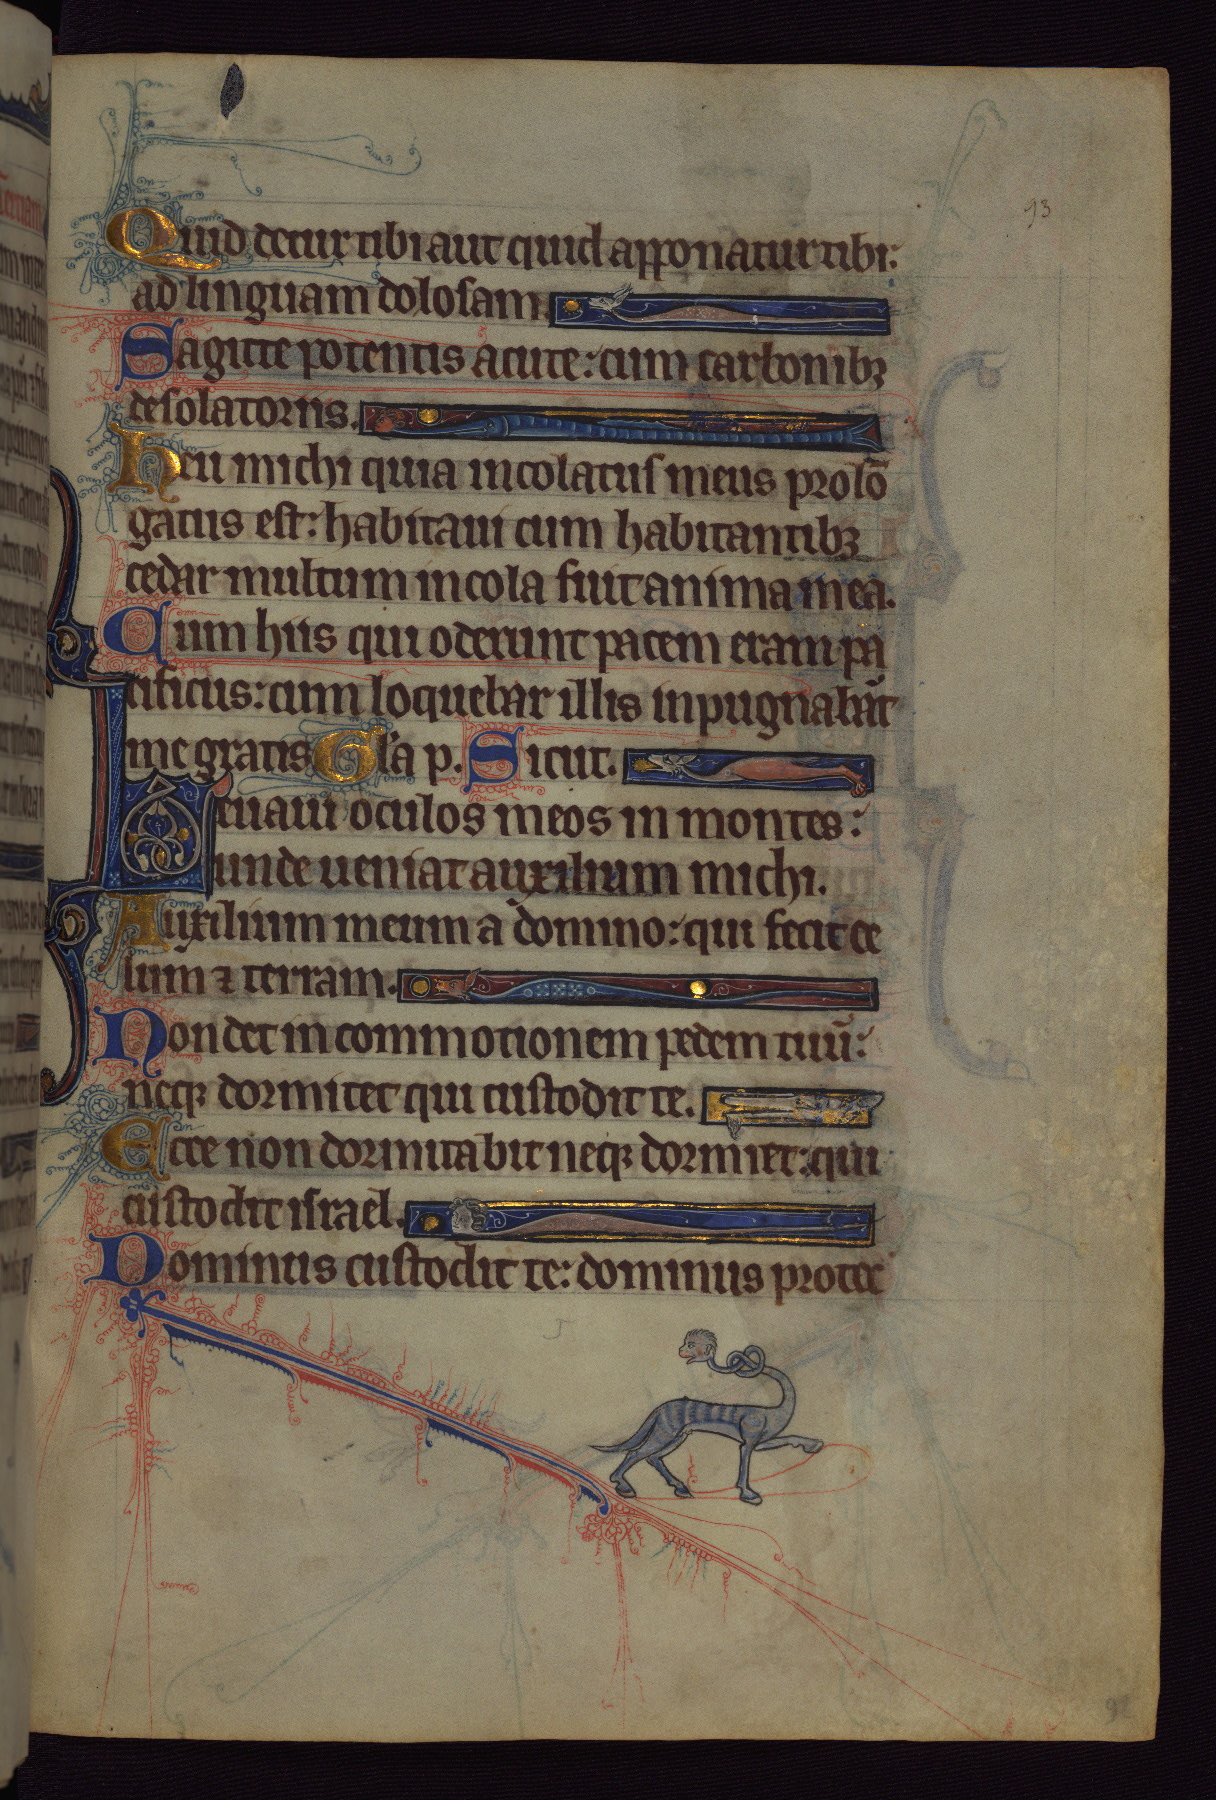 93
Quid detur tibi aut quid apponatur tibi:
ad linguam dolosam.
Sagitte potentis acute: cum carbonibꝫ
desolatoriis.
Heu michi quia incolatus meus prolō
gatus est: habitaui cum habitantibꝫ
cedar multum incola fuit anima mea.
Cum hiis qui oderunt pacem eram pa
cificus: cum loquebar illis inpugnabāt
me gratis Gl'a p. Sicut.
Leuaui oculos meos in montes:
unde ueniat auxilium michi.
Auxilium meum a domino: qui fecit ce
lum ⁊ terram.
Non det in commotionem pedem tuū:
neqꝫ dormitet qui custodit te.
Ecce non dormitabit neqꝫ dormiet: qui
custodit israel.
Dominus custodit te: dominus protec